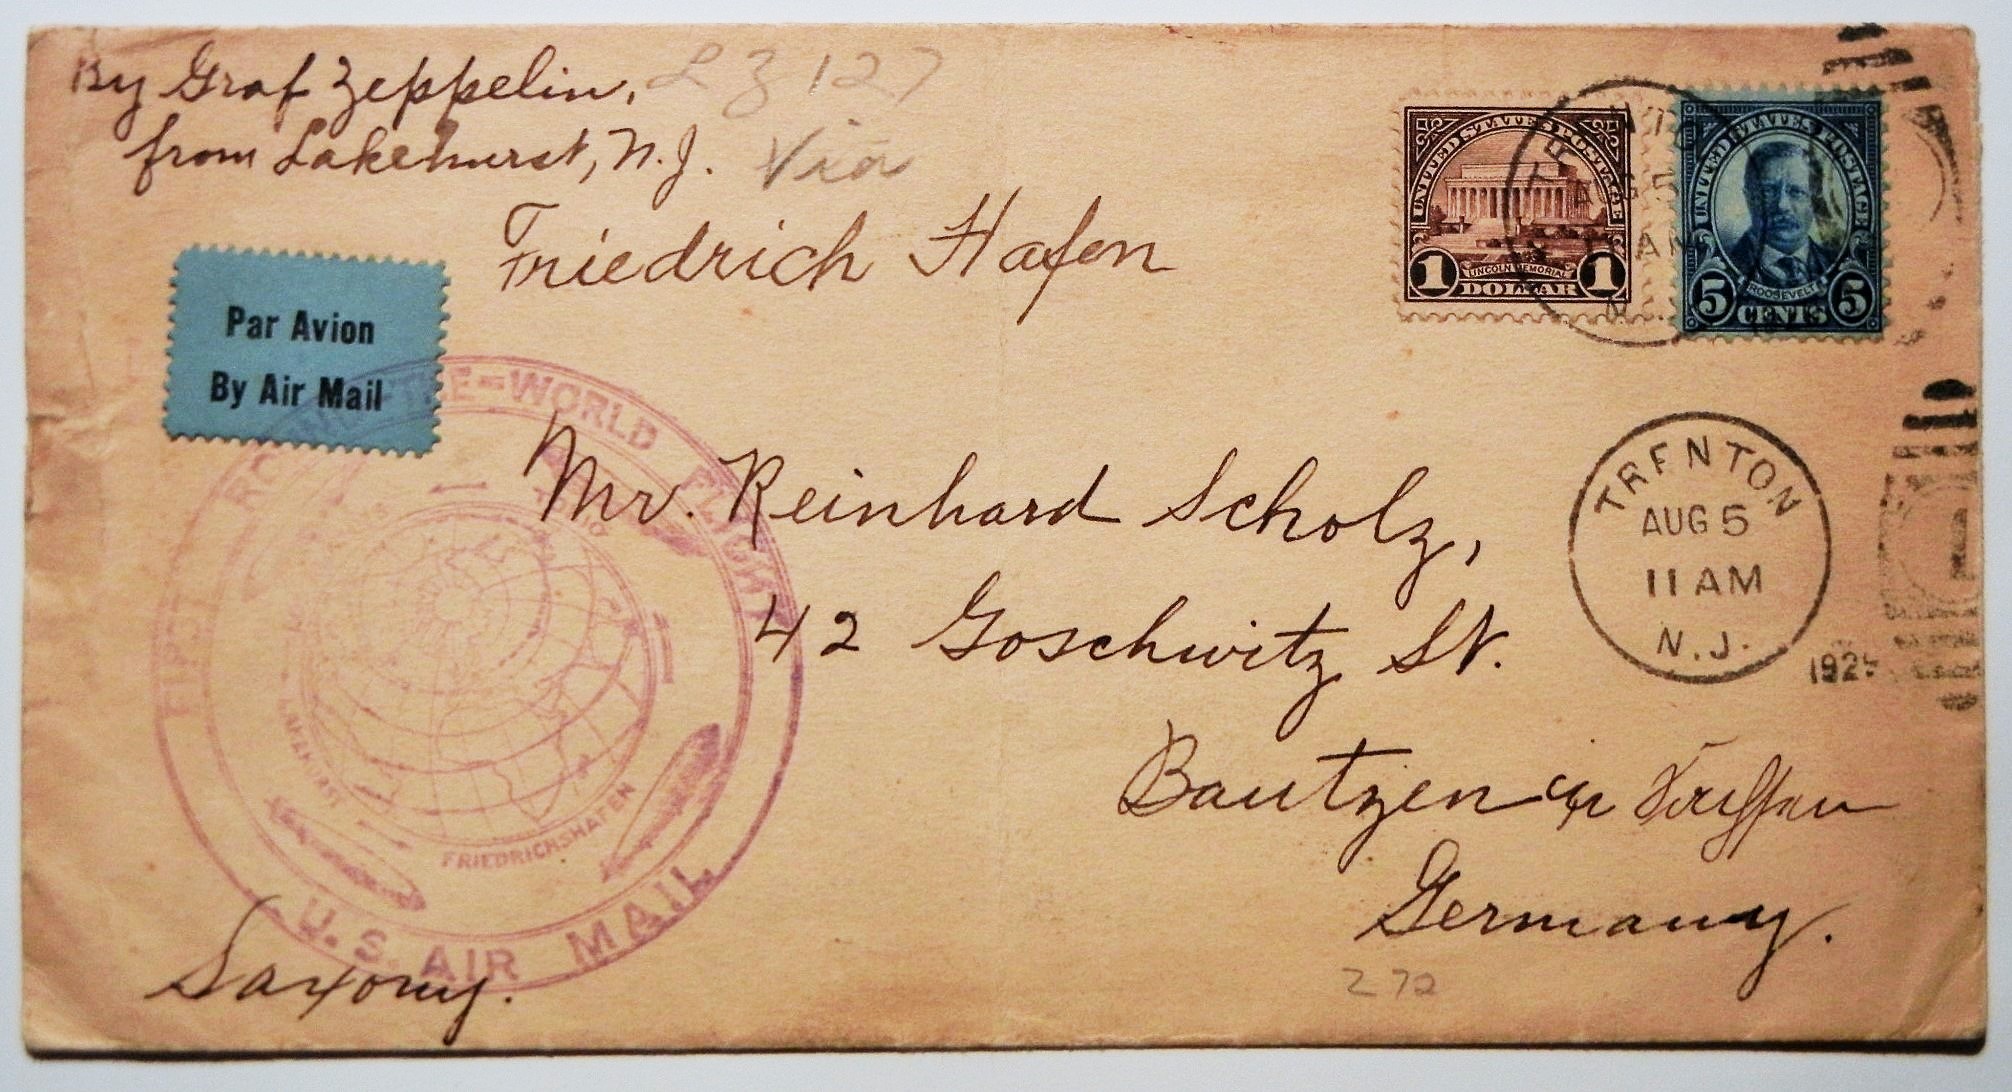 By Graf Zeppelin, LZ 127
from Lakehurst, N.J. Via
Friedrich Hafen
UNITED STATES POSTAGE
LINCOLN MEMORIAL
1 DOLLAR 1
UNITED STATES POSTAGE
ROOSEVELT
5 CENTS 5
Par Avion
By Air Mail
Mr. Reinhard Scholz,
42 Goschwitz St.
Bautzen i/ Sachsen
Germany.
Saxony.
TRENTON
AUG 5
11 AM
N.J.
FIRST ROUND-THE-WORLD FLIGHT
TOKIO
LAKEHURST
FRIEDRICHSHAFEN
U.S. AIR MAIL
Z 72